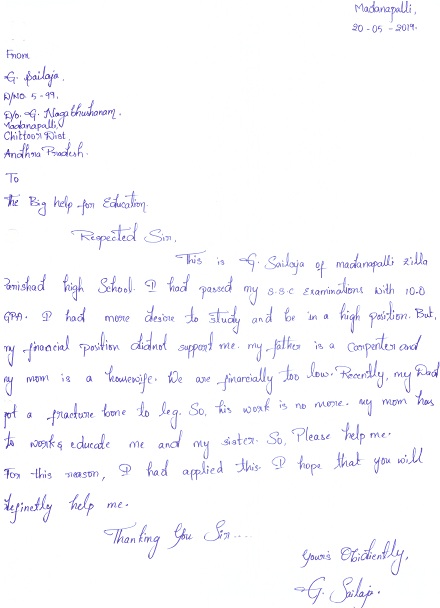 Madanapalli,
20-05-2019.
From
G. Sailaja,
D/NO 5-99,
D/o. G. Nagabhushanam.
Madanapalli,
Chittoor Dist,
Andhra Pradesh.
To
The Big help for Education.
Respected Sir,
This is G. Sailaja of madanapalli zilla
parishad high School. I had passed my S.S.C Examinations with 10.0
GPA. I had more desire to study and be in a high position. But,
my financial position didnot support me. my father is a Carpenter and
my mom is a housewife. We are financially too low. Recently, my Dad
got a fracture bone to leg. So, his work is no more. my mom has
to work & educate me and my sister. So, Please help me.
For this reason, I had applied this. I hope that you will
definetly help me.
Thanking You Sir....
Your's Obidiently,
G. Sailaja.